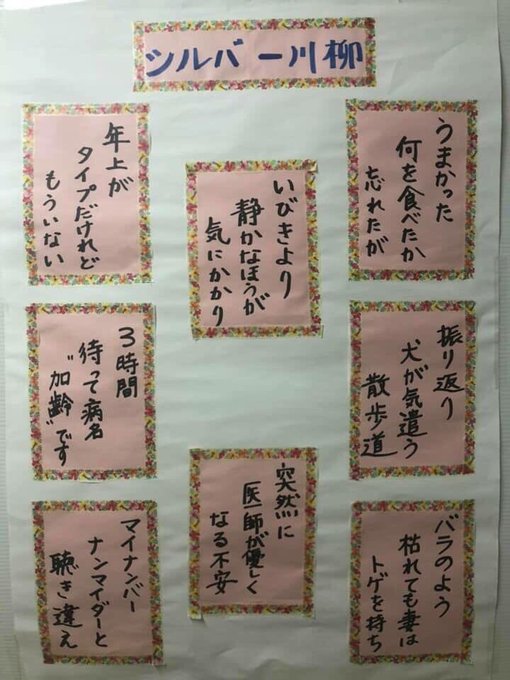 シルバー川柳
うまかった
何を食べたか
忘れたが
振り返り
犬が気遣う
散歩道
バラのよう
枯れても妻は
トゲを持ち
いびきより
静かなほうが
気にかかり
突然に
医師が優しく
なる不安
年上が
タイプだけれど
もういない
3時間
待って病名
"加齢"です
マイナンバー
ナンマイダーと
聴き違え